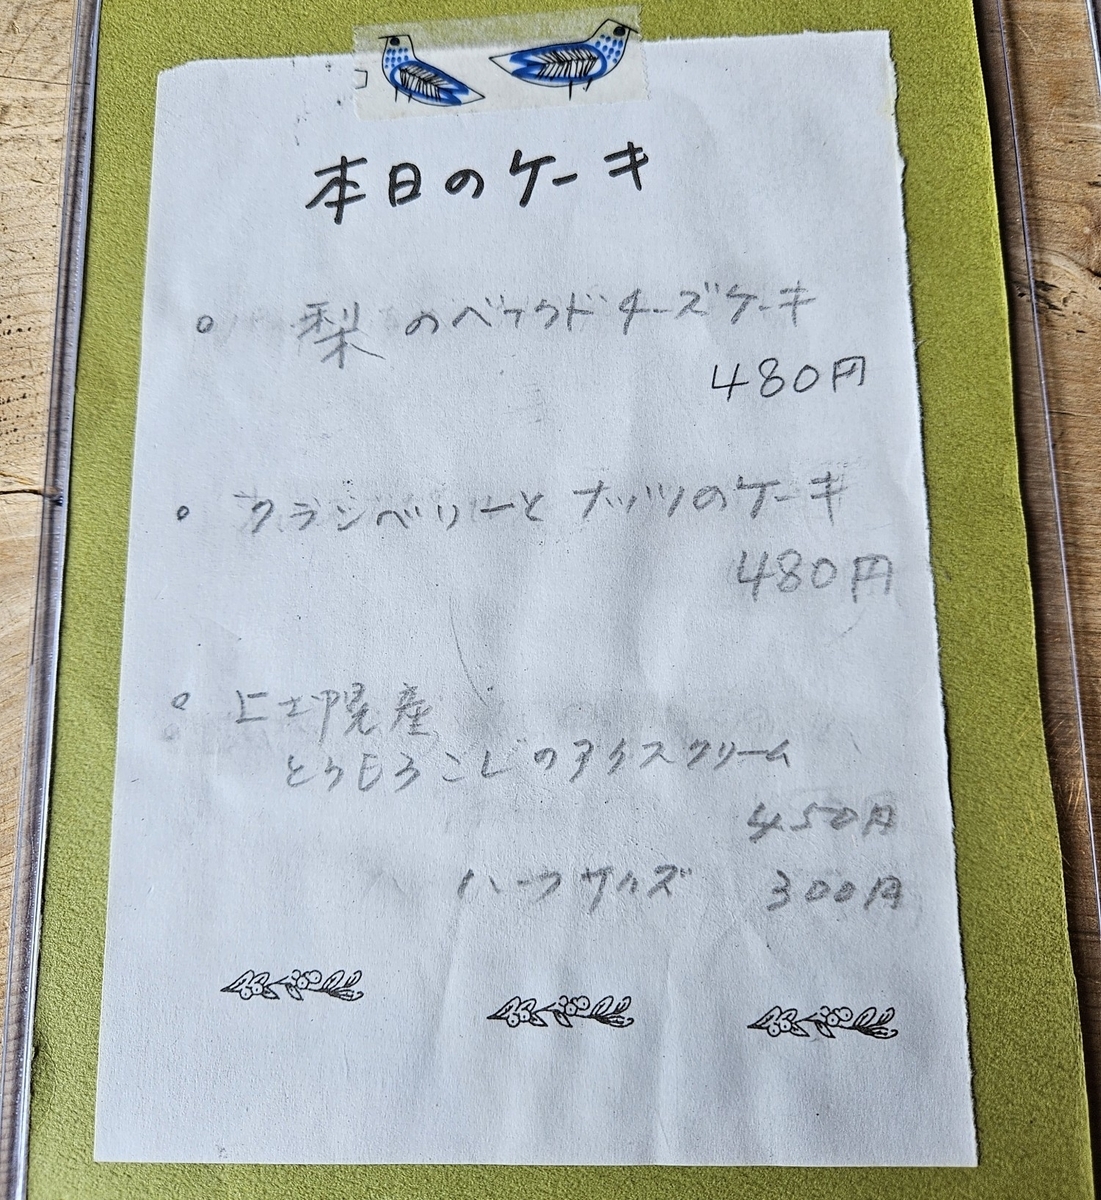 本日のケーキ
。梨のベイクドチーズケーキ
480円
。クランベリーとナッツのケーキ
480円
。上士幌産
とうもろこしのアイスクリーム
450円
ハーフサイズ 300円